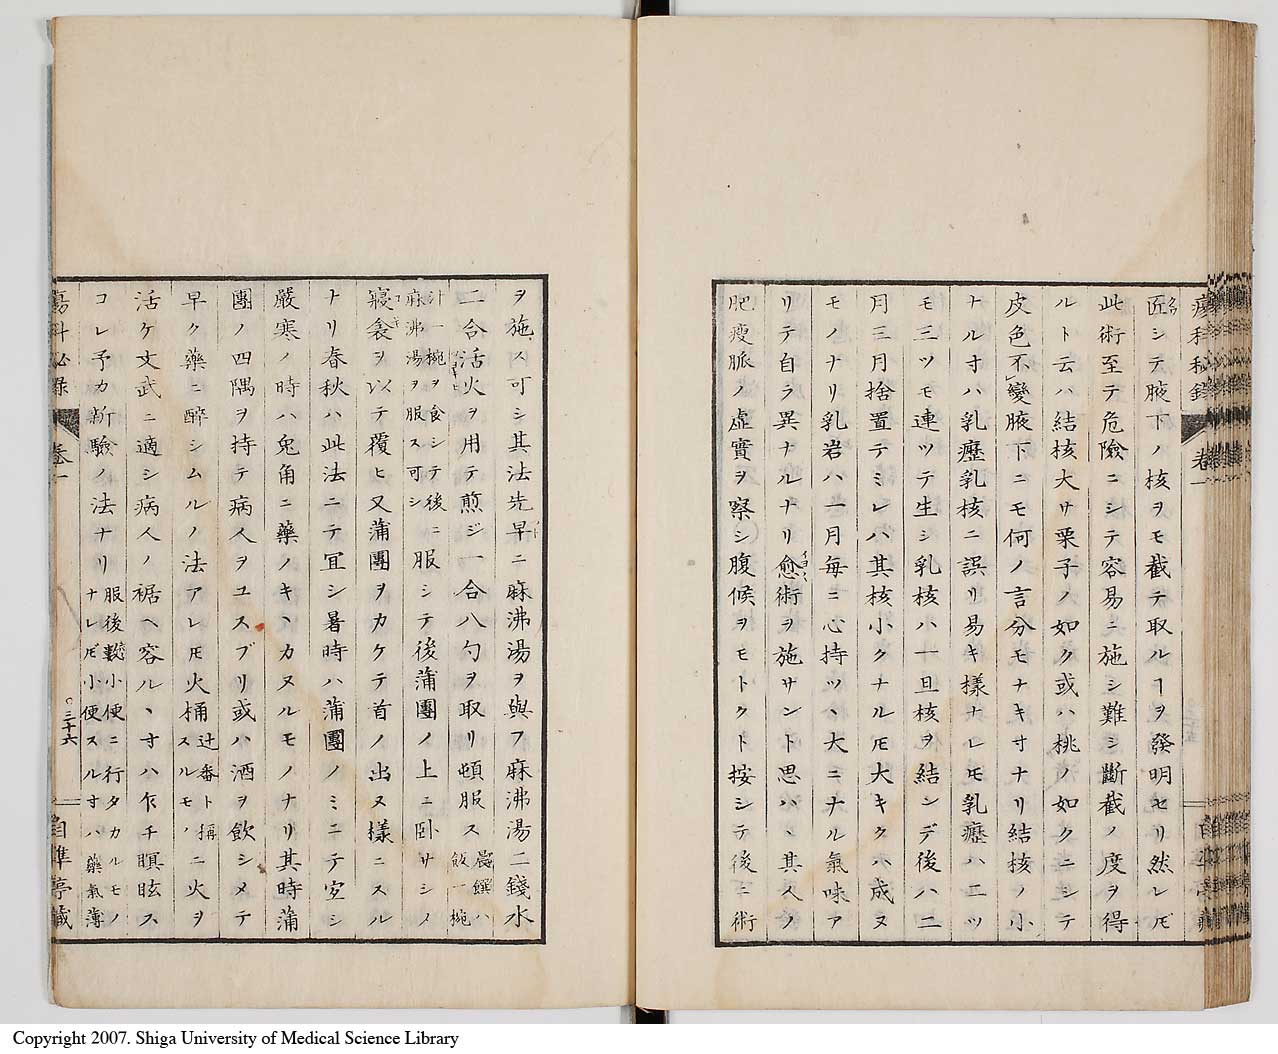 瘍科秘錄 卷一
匠シテ腋下ノ核ヲモ截テ取ルヿヲ發明セリ然レ𪜈
此術至テ危險ニシテ容易ニ施シ難シ斷截ノ度ヲ得
ルト云ハ結核大サ栗子ノ如ク或ハ桃ノ如クニシテ
皮色不變腋下ニモ何ノ言分モナキ寸ナリ結核ノ小
ナル寸ハ乳癧乳核ニ誤リ易キ樣ナレモ乳癧ハ二ツ
モ三ツモ連ツテ生シ乳核ハ一旦核ヲ結ンデ後ハ二
月三月捨置テミレハ其核小クナル𪜈大キクハ成ヌ
モノナリ乳岩ハ一月每ニ心持ツヽ大ニナル氣味ア
リテ自ラ異ナルナリ愈術ヲ施サント思ハヽ其人ノ
肥瘦脈ノ虛實ヲ察シ腹候ヲモトクト按シテ後ニ術
ヲ施ス可シ其法先早ニ麻沸湯ヲ與フ麻沸湯二錢水
二合活火ヲ用テ煎ジ一合八勺ヲ取リ頓服ス 晨饌ハ飯一椀
汁一椀ヲ食シテ後ニ麻沸湯ヲ服ス可シ 服シテ後蒲團ノ上ニ卧サシメ
寢衾ヲ以テ覆ヒ又蒲團ヲカケテ首ノ出ヌ樣ニスル
ナリ春秋ハ此法ニテ冝シ暑時ハ蒲團ノミニテ冝シ
嚴寒ノ時ハ兔角ニ藥ノキヽカヌルモノナリ其時蒲
團ノ四隅ヲ持テ病人ヲユスブリ或ハ酒ヲ飮シメテ
早ク藥ニ醉シムルノ法アレ𪜈火桶 辻番ト稱スルモノ ニ火ヲ
活ケ文武ニ適シ病人ノ裾ヘ容ルヽ寸ハ乍チ瞑眩ス
コレ予カ新驗ノ法ナリ 服後數小便ニ行タカルモノナレ𪜈小便スル寸ハ藥氣薄
瘍科秘錄 卷一 ○三十六 自準亭藏